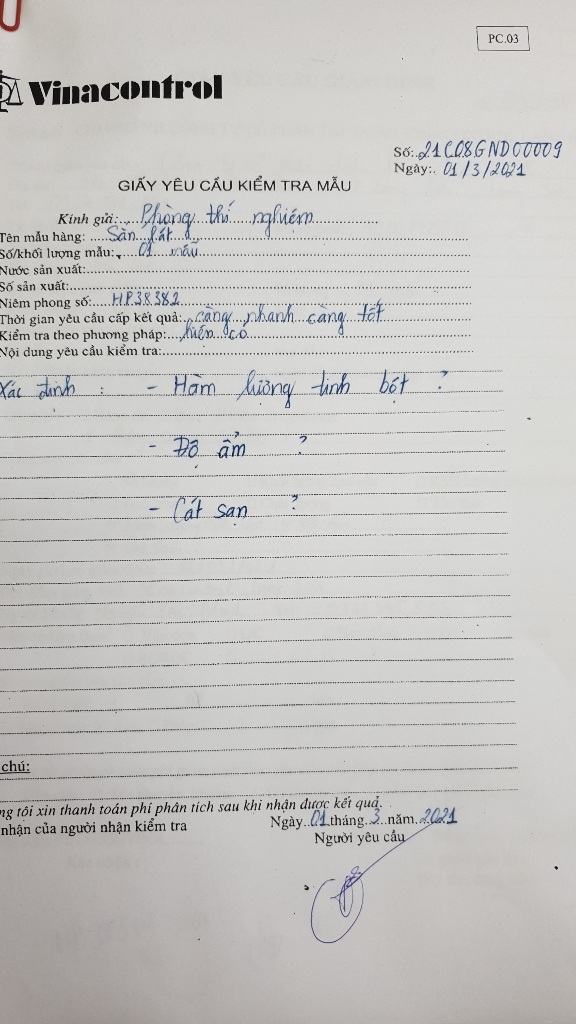 PC.03
Vinacontrol
Số:.21C08GND00009
Ngày:. 01/3/2021
GIẤY YÊU CẦU KIỂM TRA MẪU
Kính gửi:...Phòng thí nghiệm
Tên mẫu hàng: ....Sắn lát
Số/khối lượng mẫu:....01 mẫu
Nước sản xuất:
Số sản xuất:
Niêm phong số:....HP38382
Thời gian yêu cầu cấp kết quả:...càng nhanh càng tốt
Kiểm tra theo phương pháp:...hiện có
Nội dung yêu cầu kiểm tra:
Xác định : - Hàm lượng tinh bột ?
- Độ ẩm ?
- Cát sạn ?
chú:
ng tôi xin thanh toán phí phân tích sau khi nhận được kết quả.
nhận của người nhận kiểm tra Ngày..01.tháng..3..năm..2021
Người yêu cầu